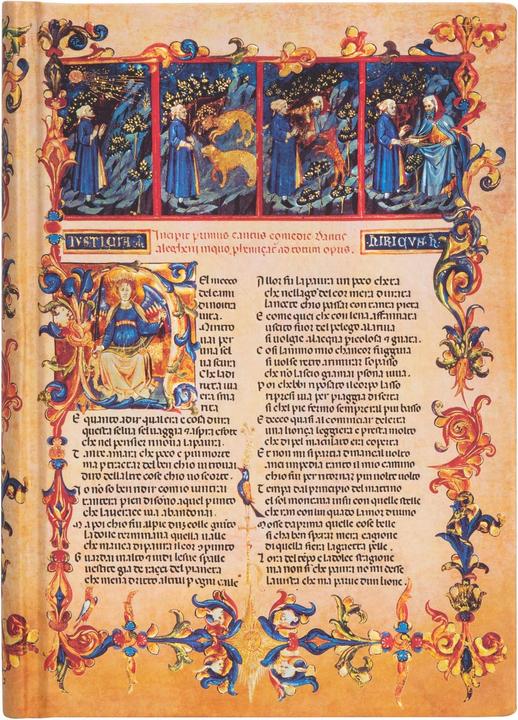 IVSTICIA
Incipit primus cantus comedie Dantis
alegherij in quo
ad totum opus.
El mecco
del cami
di nostra
uita.
Mi ritro
uai per
una sel
ua scura
Che la di
ritta uia
era sma
rita
E quanto a dir qual era e cosa dura
questa selua seluaggia & aspra e forte
che nel pensier rinoua la paura.
T ant e amara che poco e piu morte
ma per tractar del ben chio ui trouai
diro dell altre cose chio no scorte.
I o no so ben ridir comio uintrai
tantera pien di sono a quel punto
che la uerace uia abandonai.
M a poi chio fui al pie dun colle giunto
la doue terminaua quella ualle
che mauea di paura il cor compunto
G uardai in alto & uidi le sue spalle
uestite gia de raggi del pianeta
che mena dritto altrui per ogni calle
A llor fu la paura un poco cheta
che nel lago del cor mera durata
la nocte chio passai con tanta pieta
E come quei che con lena affannata
uscito fuor del pelego alla riua
si uolge alacqua piculosa & guata.
C osi lanimo mio chancor fuggiua
si uolse retro a mirar lo passo
che no lascio gia mai psona uiua.
P oi chebbi riposato il corpo lasso
ripresi uia per piaggia diserta
si chel pie fermo sempre era il piu basso
E t ecco quasi al cominciar de lerta
una lionza leggiera e presta molto
che di pel maculato era coperta
E t non mi si partia dinanzi al uolto
anzi impedia tanto il mio camino
chio fui per ritornar piu uolte uolto
T emp era dal principio del matino
el sol montaua in su con quelle stelle
cheran con lui quado lamor diuino
M osse da prima quelle cose belle
si cha ben sperar mera cagione
di quella fiera la gaetta pelle.
L ora del tepo e la dolce stagione
ma non si che paura no mi desse
la uista che ma parue dun lione.